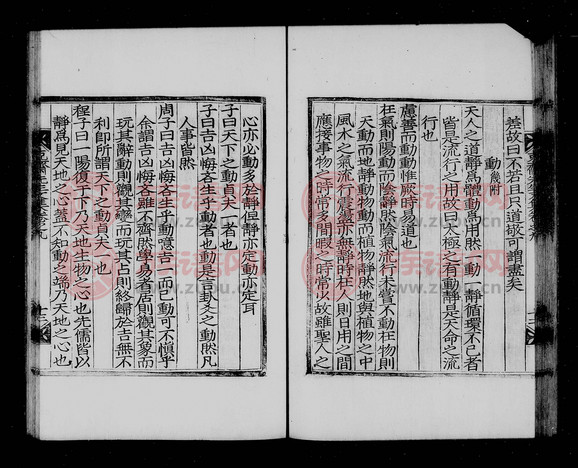 盖故曰不若且只道敬可謂盡矣
動幾附
天人之道靜爲體動爲用然一動一靜循環不已者
皆是流行之用故曰太極之有動靜是天命之流
行也
慮善而動動惟厥時易道也
在氣則陽動而陰靜然陰氣流行未嘗不動在物則
天動而地靜動物動而植物靜然地與植物之中
風水之氣流行震蕩亦無靜時在人則日用之間
應接事物之時常多閒暇之時常少故雖聖人之
心亦必動多於靜但靜亦定動亦定耳
子曰天下之動貞夫一者也
子曰吉凶悔吝生乎動者也動是言卦爻之動然凡
人事皆然
周子曰吉凶悔吝生乎動噫吉一而已動可不慎乎
余謂吉凶悔吝雖不齊然學易者居則觀其象而
玩其辭動則觀其變而玩其占則終歸於吉無不
利卽所謂天下之動貞夫一也
程子曰一陽復于下乃天地生物之心也先儒皆以
靜爲見天地之心蓋不知動之端乃天地之心也